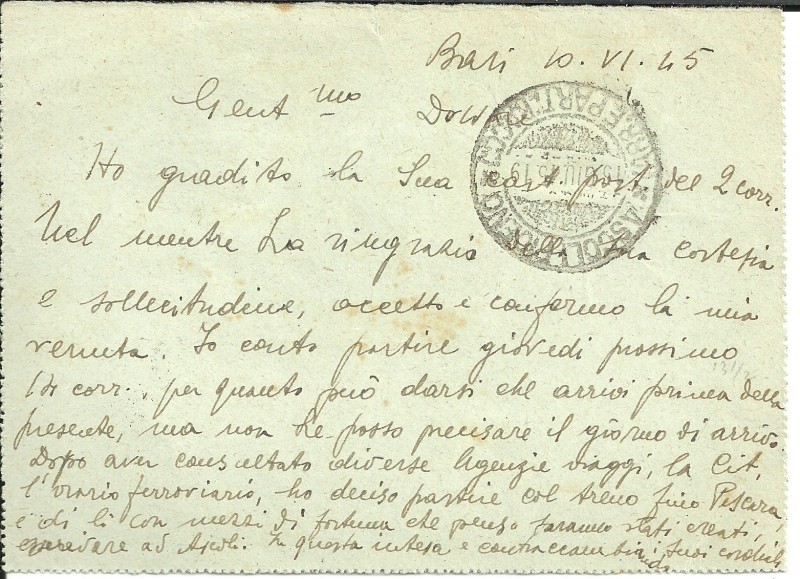 Bari 10. VI. 45
Gent.mo Dottore
Ho gradito la Sua cart. post. del 2 corr.
Nel mentre La ringrazio della Sua cortesia
e sollecitudine, accetto e confermo la mia
venuta. Io conto partire giovedì prossimo
14 corr., per quanto può darsi che arrivi prima della
presente, ma non Le posso precisare il giorno di arrivo.
Dopo aver consultato diverse Agenzie viaggi, la Cit,
l'orario ferroviario, ho deciso partire col treno fino Pescara,
e di lì con mezzi di fortuna che penso saranno stati creati,
ad Ascoli. In questa intesa e contraccambiando i Suoi cordiali
ASCOLI PICENO
CORR. E PARTI
GIU. 19